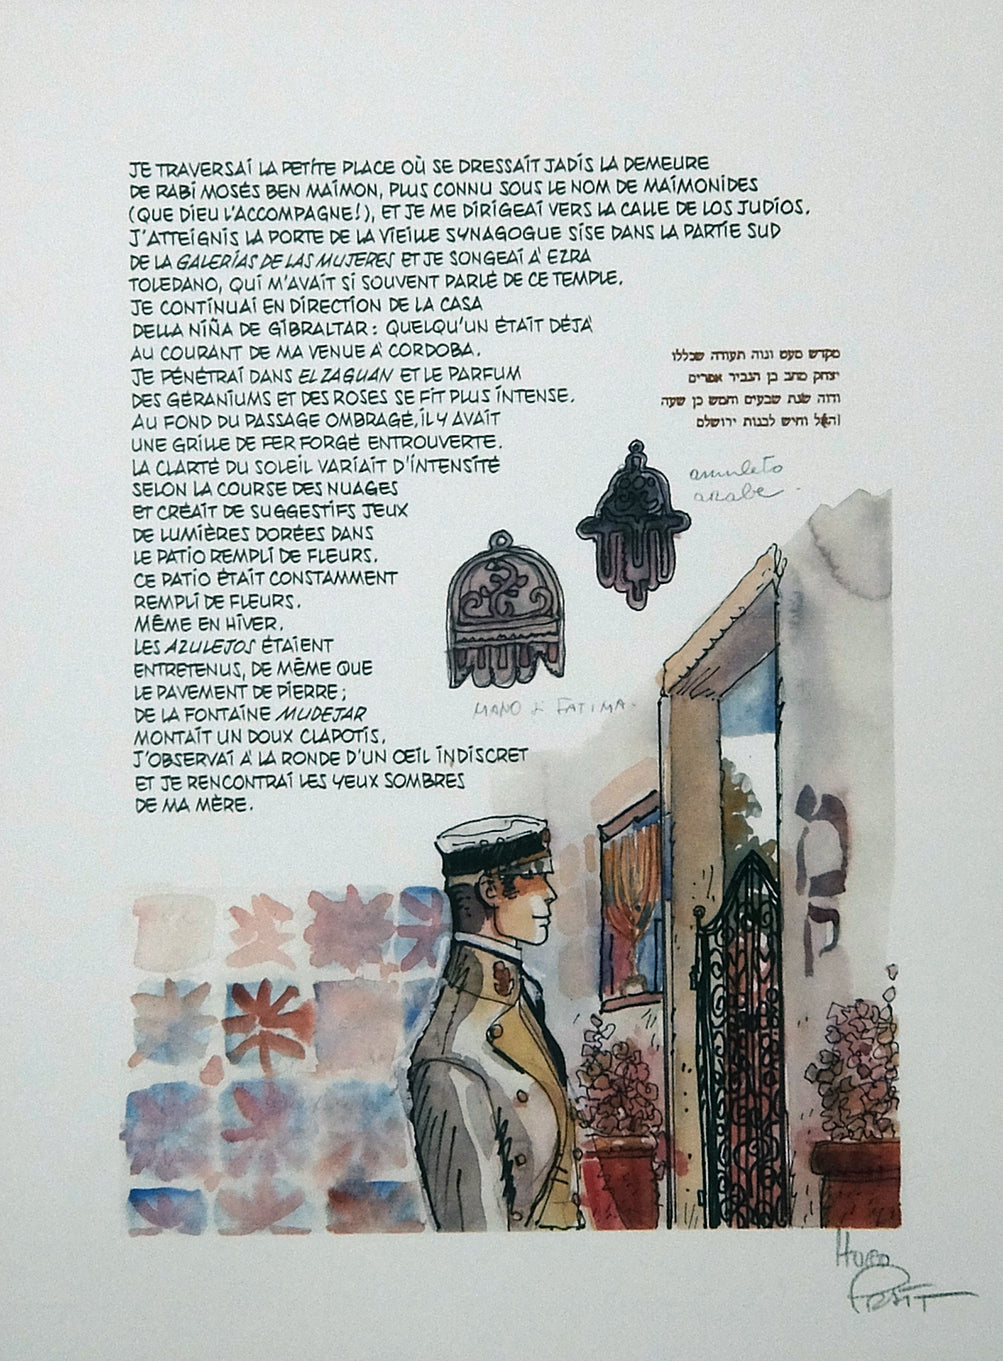 JE TRAVERSAI LA PETITE PLACE OÙ SE DRESSAIT JADIS LA DEMEURE
DE RABI MOSÉS BEN MAIMON, PLUS CONNU SOUS LE NOM DE MAIMONIDES
(QUE DIEU L'ACCOMPAGNE!), ET JE ME DIRIGEAI VERS LA CALLE DE LOS JUDIOS.
J'ATTEIGNIS LA PORTE DE LA VIEILLE SYNAGOGUE SISE DANS LA PARTIE SUD
DE LA GALERÍAS DE LAS MUJERES ET JE SONGEAI À EZRA
TOLEDANO, QUI M'AVAIT SI SOUVENT PARLÉ DE CE TEMPLE.
JE CONTINUAI EN DIRECTION DE LA CASA
DELLA NIÑA DE GIBRALTAR : QUELQU'UN ÉTAIT DÉJÀ
AU COURANT DE MA VENUE À CORDOBA.
JE PÉNÉTRAI DANS EL ZAGUAN ET LE PARFUM
DES GÉRANIUMS ET DES ROSES SE FIT PLUS INTENSE.
AU FOND DU PASSAGE OMBRAGÉ, IL Y AVAIT
UNE GRILLE DE FER FORGÉ ENTROUVERTE.
LA CLARTÉ DU SOLEIL VARIAIT D'INTENSITÉ
SELON LA COURSE DES NUAGES
ET CRÉAIT DE SUGGESTIFS JEUX
DE LUMIÈRES DORÉES DANS
LE PATIO REMPLI DE FLEURS.
CE PATIO ÉTAIT CONSTAMMENT
REMPLI DE FLEURS.
MÊME EN HIVER.
LES AZULEJOS ÉTAIENT
ENTRETENUS, DE MÊME QUE
LE PAVEMENT DE PIERRE ;
DE LA FONTAINE MUDEJAR
MONTAIT UN DOUX CLAPOTIS.
J'OBSERVAI À LA RONDE D'UN ŒIL INDISCRET
ET JE RENCONTRAI LES YEUX SOMBRES
DE MA MÈRE.
מקדש מעט ונוה תעודה שכללו
יצחק מחב בן הגביר אפרים
ודוה שנת שבעים וחמש בן שעה
האל וחיש לבנות ירושלם
amuleto
arabe
MANO di FATIMA
Hugo
Pratt